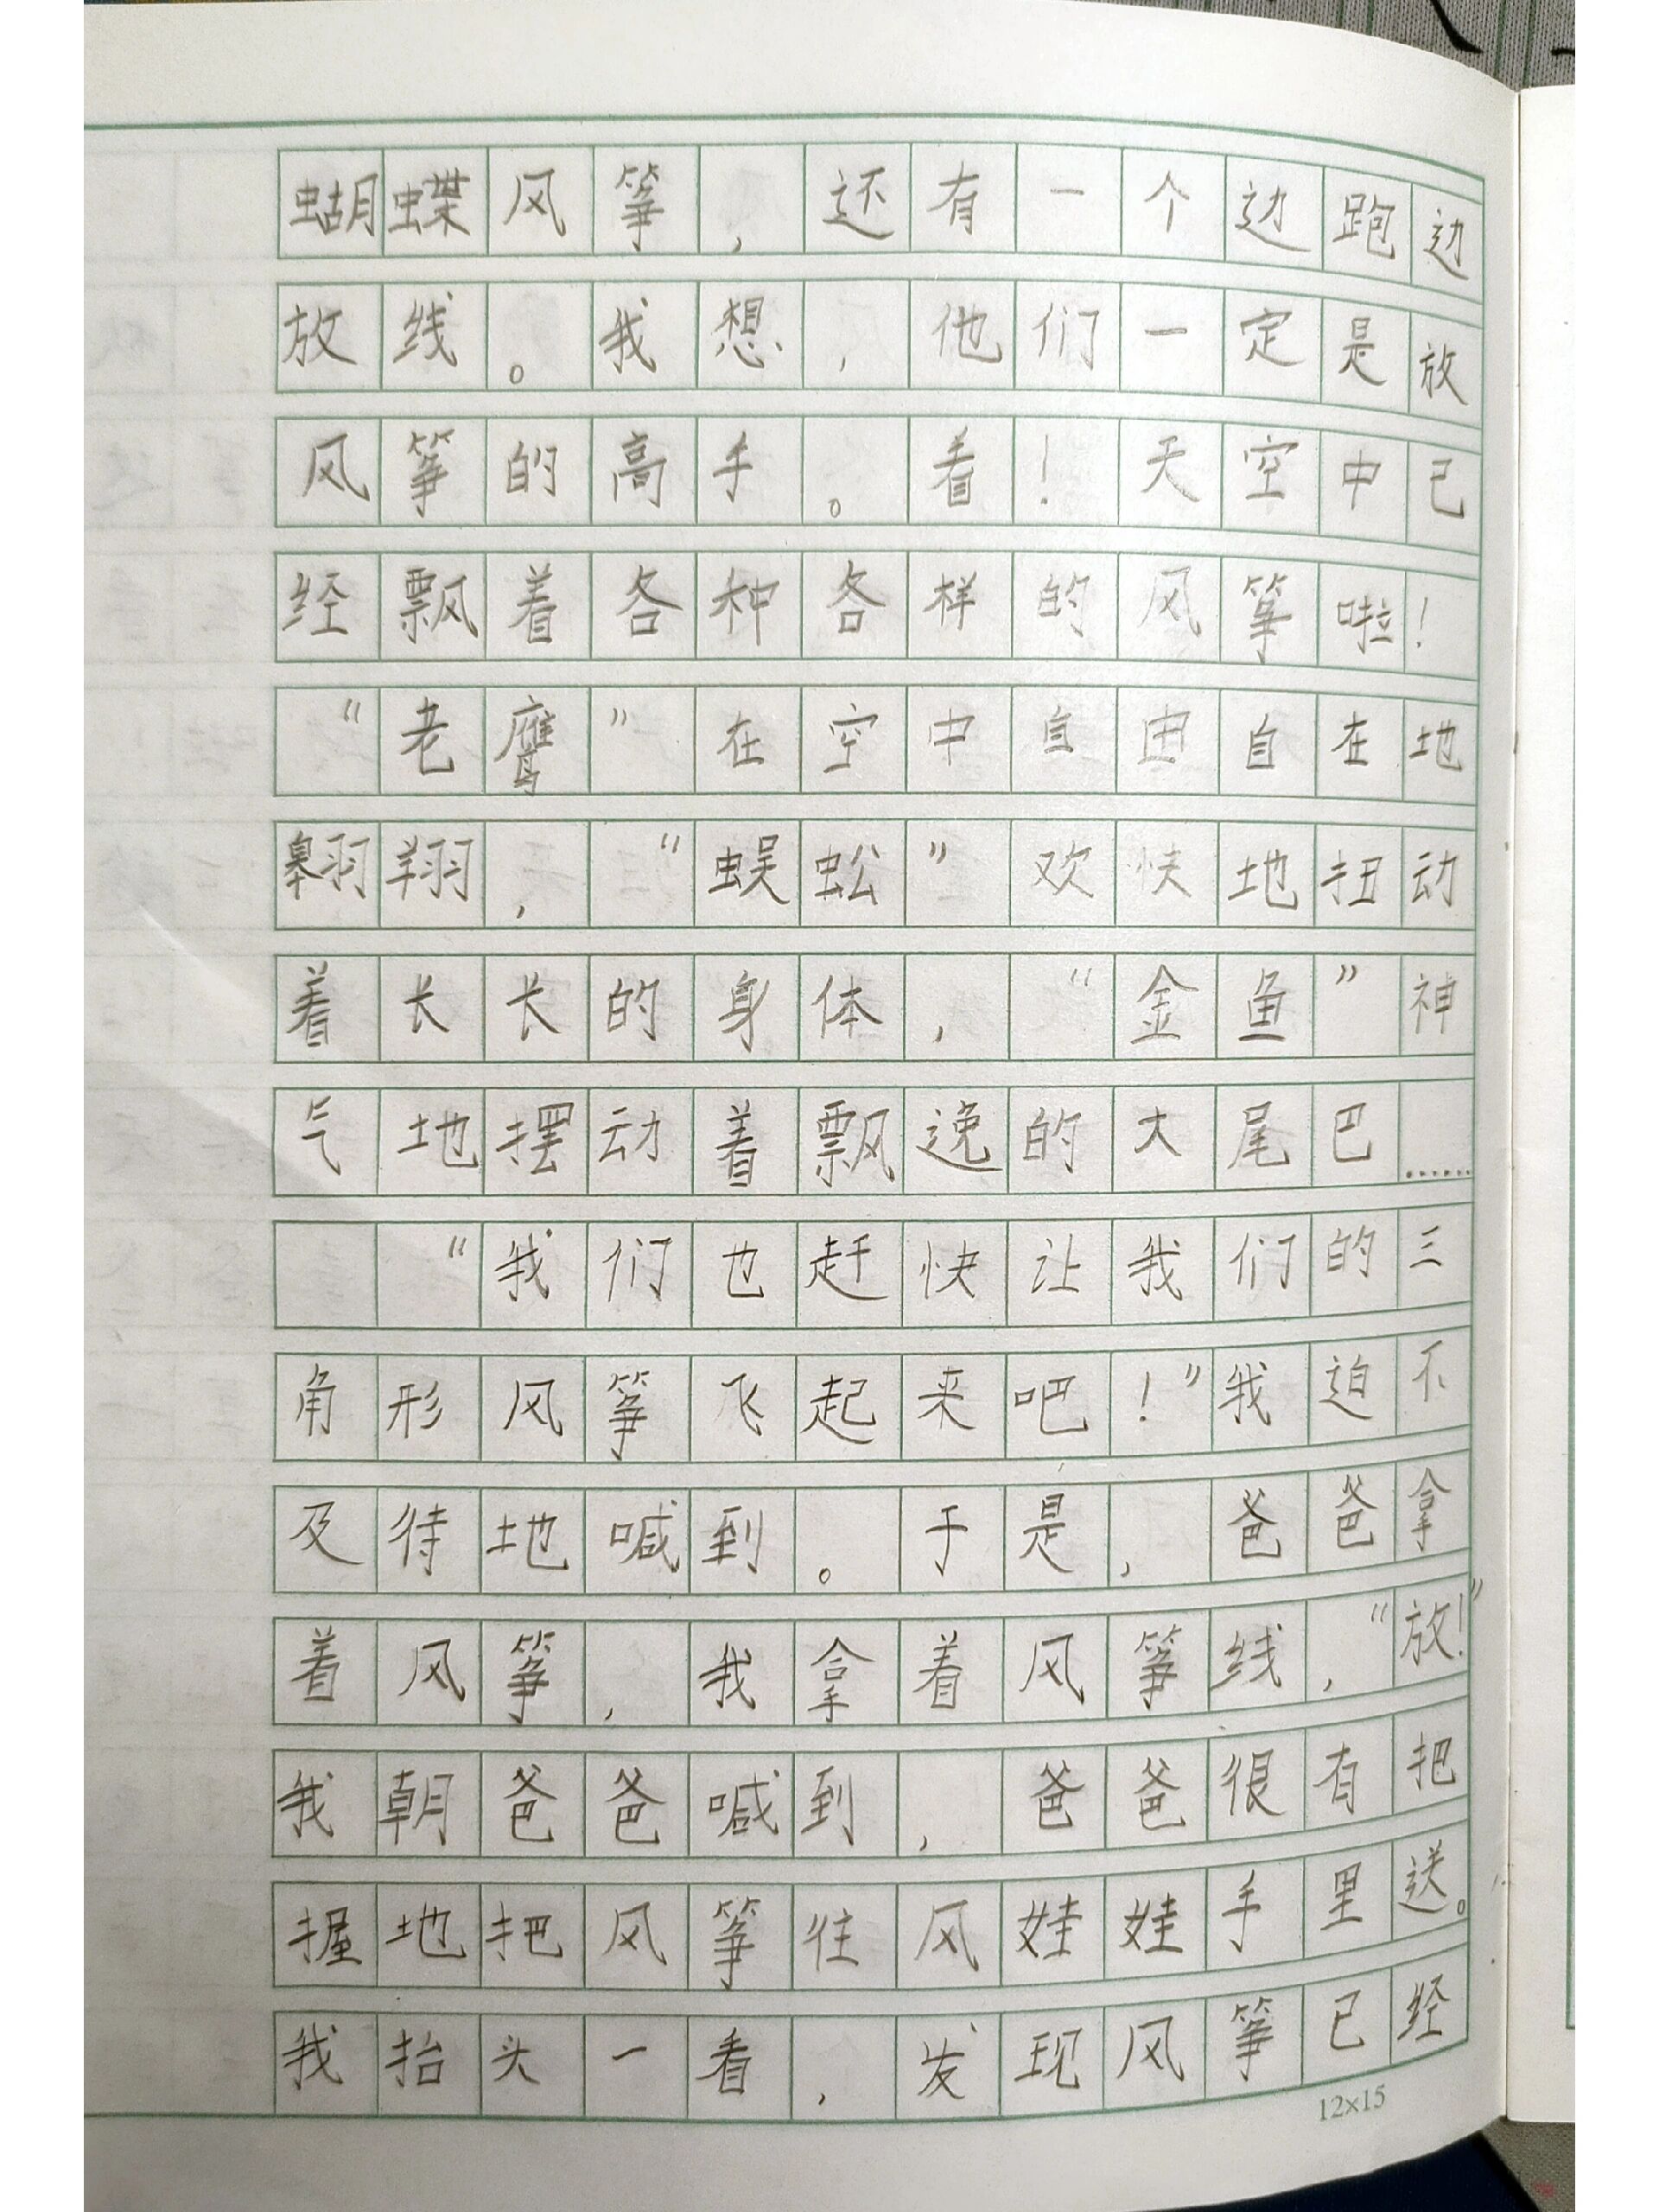 蝴蝶风筝，还有一个边跑边
放线。我想，他们一定是放
风筝的高手。看！天空中已
经飘着各种各样的风筝啦！
“老鹰”在空中自由自在地
翱翔，“蜈蚣”欢快地扭动
着长长的身体，“金鱼”神
气地摆动着飘逸的大尾巴……
“我们也赶快让我们的三
角形风筝飞起来吧！”我迫不
及待地喊到。于是，爸爸拿
着风筝，我拿着风筝线，“放！”
我朝爸爸喊到，爸爸很有把
握地把风筝往风娃娃手里送。
我抬头一看，发现风筝已经
12×15